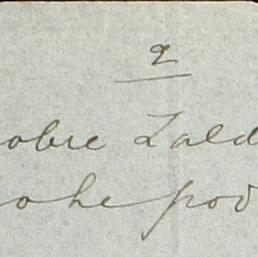 2
obre Zald
ohe pod